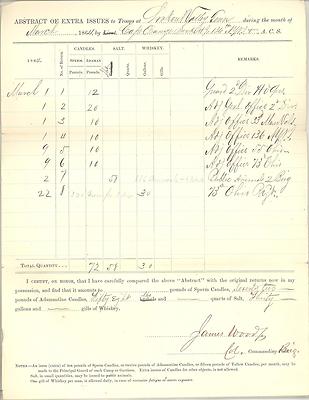 ABSTRACT OF EXTRA ISSUES to Troops at Lookout Valley Tenn during the month of
March 1864, by Capt Orange Sackett Jr 136 NYV A. C. S.
1864. No. of Return. CANDLES. SALT. WHISKEY. REMARKS.
SPERM Pounds. ADAMAN Pounds. Quarts. Gallons. Gills.
March 1 1 12 Guard 2d Div Hd Qrs
1 2 20 Adj Genl Office 2d Div
1 3 10 Adj Office 33 Mass Vols
1 4 10 Adj Office 136 NYV
9 5 10 Adj Office 55 Ohio
9 6 10 Adj Office 73 Ohio
2 7 58 Public Animals 2 Brig
22 8 30 73d Ohio Regt
TOTAL QUANTITY, 72 58 30
I CERTIFY, ON HONOR, that I have carefully compared the above "Abstract" with the original returns now in my
possession, and find that it amounts to pounds of Sperm Candles, seventy two
pounds of Adamantine Candles, fifty eight lbs and quarts of Salt, thirty
gallons and gills of Whiskey.
James Wood Jr
Col. Commanding Brig.
NOTES.—An issue (extra) of ten pounds of Sperm Candles, or twelve pounds of Adamantine Candles, or fifteen pounds of Tallow Candles, per month, may be
made to the Principal Guard of each Camp or Garrison. Extra issues of Candles for other objects, is not allowed.
Salt, in small quantities, may be issued to public animals.
One gill of Whiskey per man, is allowed daily, in case of excessive fatigue or severe exposure.